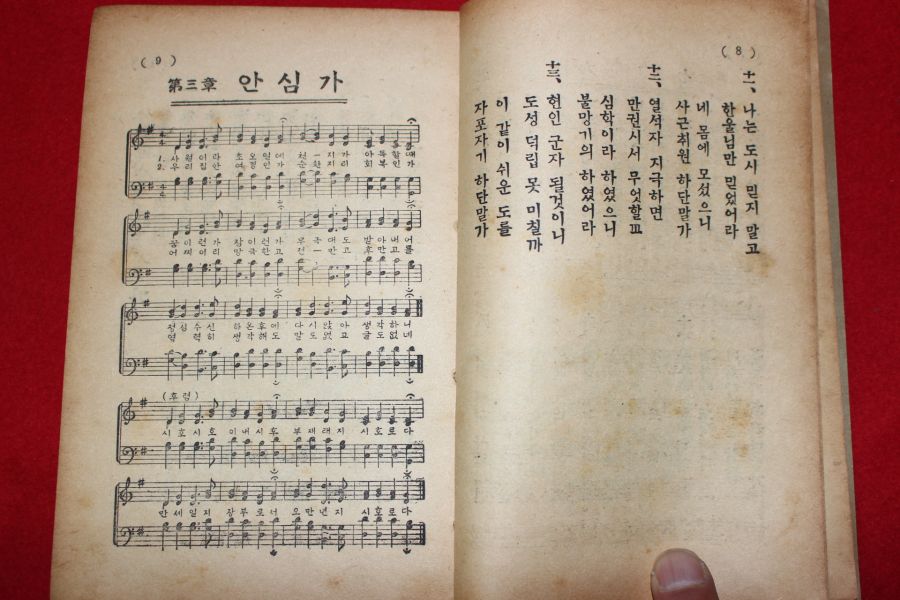 ( 8 )
十一、 나는 도시 믿지 말고
한울님만 믿었어라
네 몸에 모셨으니
사근취원 하단말가
十二、 열석자 지극하면
만권시서 무엇할꼬
심학이라 하였으니
불망기의 하였어라
十三、 현인 군자 될것이니
도성 덕립 못 미칠까
이 같이 쉬운 도를
자포자기 하단말가
( 9 )
第三章 안심가
1. 사월이라 초오일에 천지가 아득할때
2. 우리집안
꿈이런가 잠이런가 무극대도 받아내어
정심수신 하온후에 다시앉아 생각하니
역력히 생각해도 말도없고 글도없네
(후렴)
시호시호 이내시호 부재래지 시호로다
만세일지 장부로서 오만년지 시호로다